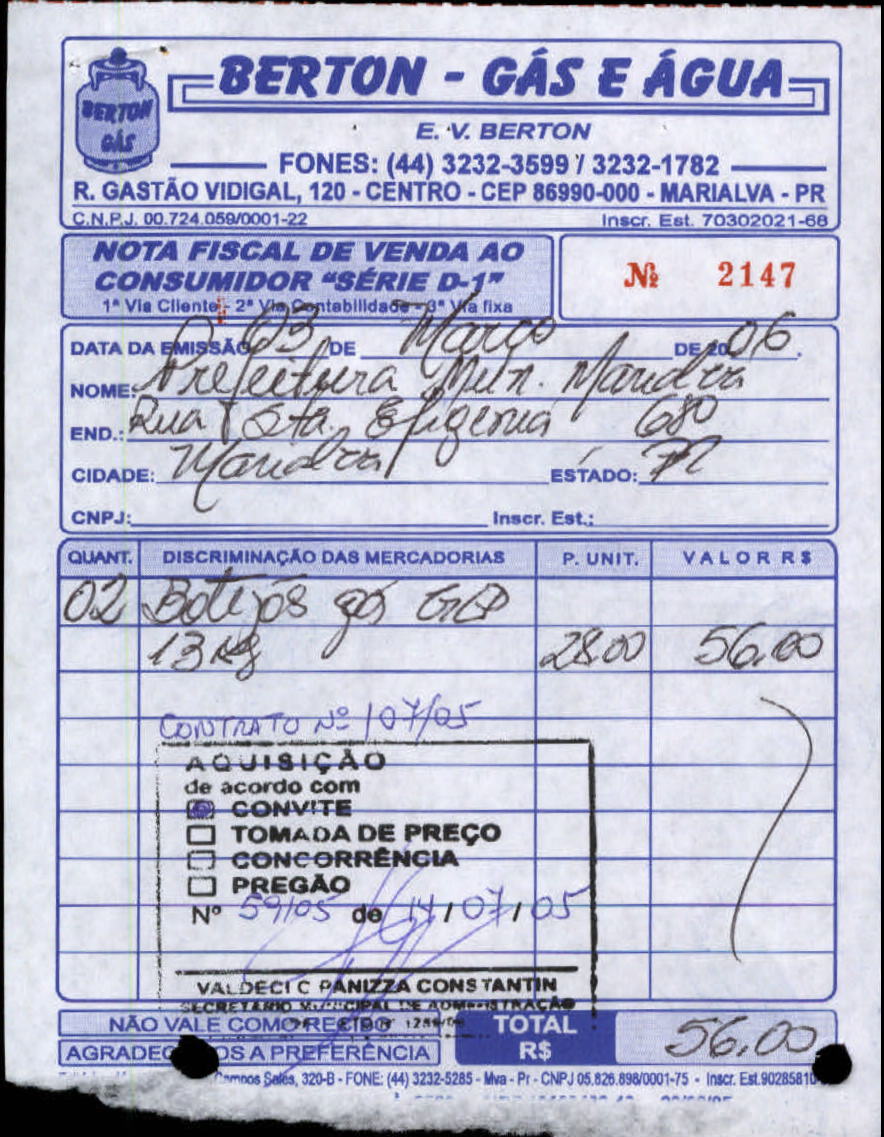 BERTON GÁS
BERTON - GÁS E ÁGUA
E. V. BERTON
FONES: (44) 3232-3599 / 3232-1782
R. GASTÃO VIDIGAL, 120 - CENTRO - CEP 86990-000 - MARIALVA - PR
C.N.P.J. 00.724.059/0001-22 Inscr. Est. 70302021-68
NOTA FISCAL DE VENDA AO
CONSUMIDOR "SÉRIE D-1"
1ª Via Cliente - 2ª Via Contabilidade - 3ª Via fixa
Nº 2147
DATA DA EMISSÃO 03 DE Março DE 2006.
NOME: Prefeitura Mun. Marialva
END.: Rua Sta. Efigenia 680
CIDADE: Marialva ESTADO: PR
CNPJ: Inscr. Est.:
QUANT. DISCRIMINAÇÃO DAS MERCADORIAS P. UNIT. VALOR R$
02 Botijôs gás GLP
13 Kg 28.00 56,00
CONTRATO Nº 107/05
AQUISIÇÃO
de acordo com
CONVITE
TOMADA DE PREÇO
CONCORRÊNCIA
PREGÃO
Nº 59/05 de 14/07/05
VALDECI C PANIZZA CONSTANTIN
SECRETARIO MUNICIPAL DE ADMINISTRAÇÃO
NÃO VALE COMO RECIBO
AGRADECEMOS A PREFERÊNCIA
TOTAL R$ 56,00
Campos Sales, 320-B - FONE: (44) 3232-5285 - Mva - Pr - CNPJ 05.826.898/0001-75 - Inscr. Est.90285810